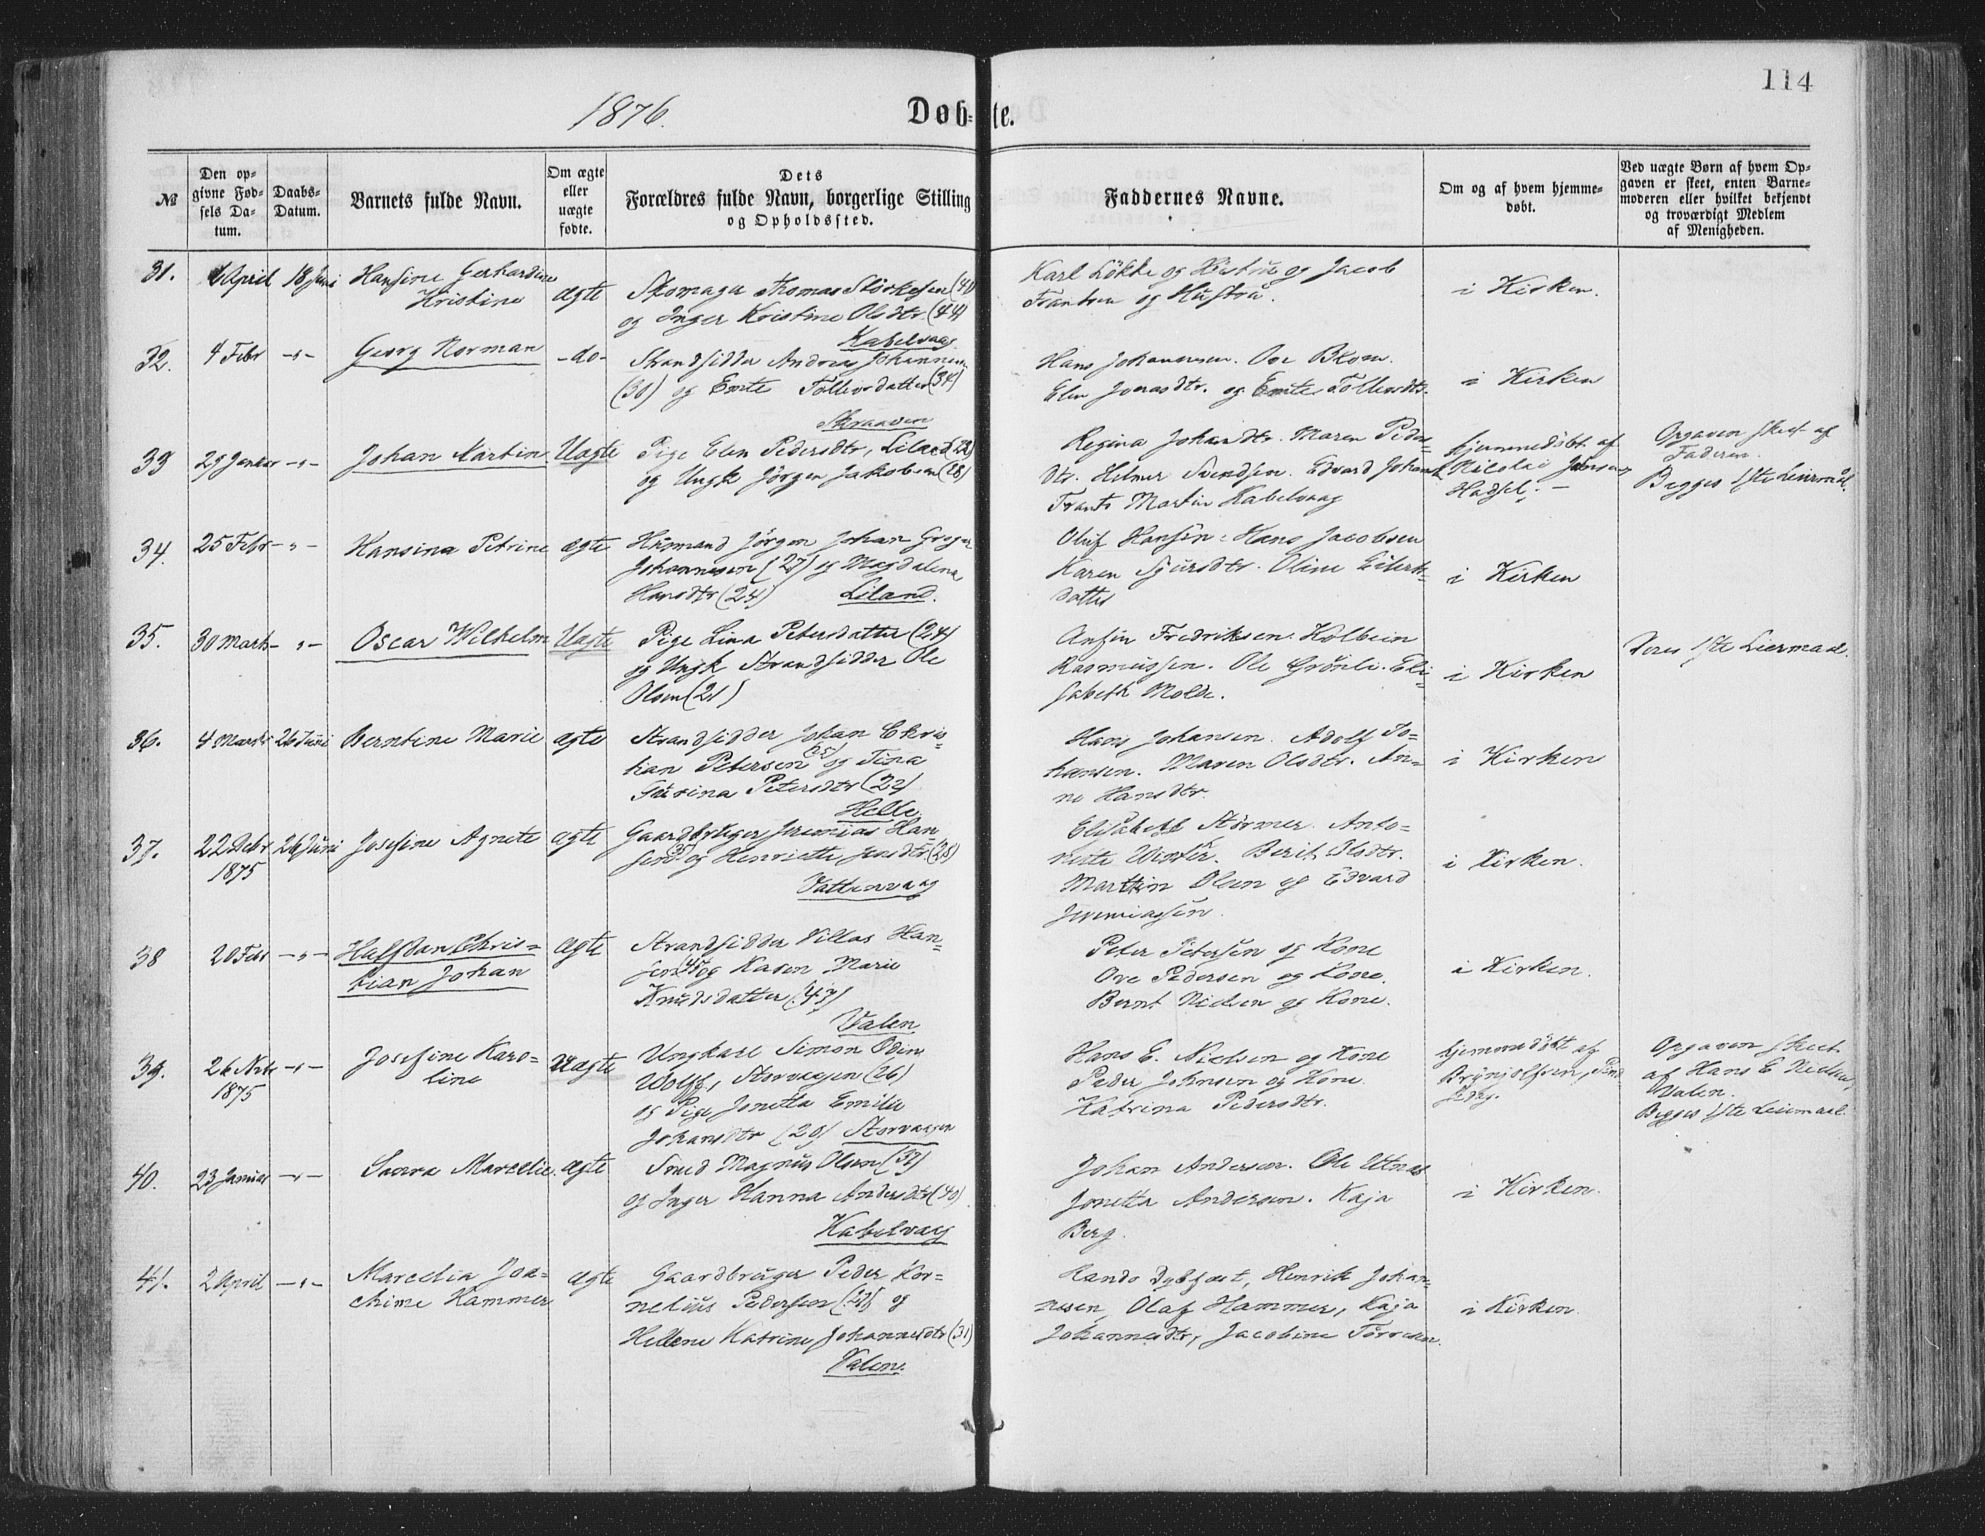 114
1876.
Døb-te.
№
Den op-
givne Fød-
sels Da-
tum.
Daabs-
Datum.
Barnets fulde Navn.
Om ægte
eller
uægte
fødte.
Dets
Forældres fulde Navn, borgerlige Stilling
og Opholdssted.
Faddernes Navne.
Om og af hvem hjemme-
døbt.
Ved uægte Børn af hvem Op-
gaven er skeet, enten Barne-
moderen eller hvilket bekjendt
og troværdigt Medlem
af Menigheden.
31. April 18 Juni Hansine Gerhardine
Kristine ægte
Skomager Thomas Størkesen (41)
og Inger Kristine Olsdtr (44)
Kabelvaag
Karl Løkke og Hustru og Jacob
Frantsen og Hustru.
i Kirken.
32. 4 Febr -"- Georg Norman -do-
Strandsidder Andreas Johannesen
(30) og Emte Tollevsdatter (34)
Skraaven
Hans Johannesen. Ove Blom.
Elen Jonasdtr. og Emte Tollevsdtr.
i Kirken
33 29 Januar -"- Johan Martin Uægte
Pige Elen Pedersdtr, Liland (22)
og Ungk Jørgen Jakobsen (28)
Regina Johandtr. Maren Peders-
dtr. Helmer Svendsen. Edvard Johans
Frants Martin Kabelvaag
hjemmedøbt af
Nikolai Jensen,
Hadsel. -
Opgaven skeet af
Faderen.
Begges 1ste Leiermål.
34. 25 Febr -"- Hansina Petrine ægte
Husmand Jørgen Johan Greger
Johannesen (27) og Magdalena
Hansdtr (24) Liland.
Oluf Hansen. Hans Jacobsen
Karen Sjursdtr. Oline Eilerts-
datter
i Kirken
35. 30 Marts -"- Oscar Wilhelm Uægte
Pige Lina Petersdatter (24)
og Ungk Strandsidder Ole
Olsen (21)
Anfin Fredriksen. Holbein
Rasmussen. Ole Grønli. Eli-
sabeth Molde.
i Kirken
Deres 1ste Leiermaal.
36. 4 Marts 26 Juni Berntine Marie ægte
Strandsidder Johan Chris-
tian Petersen og Tina
Petersdtr (22)
Helle
Hans Johansen. Adolf Jo-
hansen. Maren Olsdtr. An-
ne Hansdtr.
i Kirken
37. 22 Debr 26 Juni Josefine Agnete ægte
1875
Gaardbruger Jeremias Han-
sen og Henriette Jensdtr (25)
Vattervaag
Elisabeth Størmer. Anto-
nette Winter. Berit Olsdtr.
Marthin Olsen og Edvard
Jeremiassen.
i Kirken.
38 20 Febr -"- Halfdan Chris-
tian Johan ægte
Strandsidder Villas Han-
sen og Karen Marie
Knudsdatter (43)
Valen
Peter Petersen og Kone
Ove Pedersen og Kone.
Bernt Nielsen og Kone.
i Kirken.
39. 26 Nvbr -"- Josefine Karo-
1875 line uægte
Ungkarl Simon Odin
Wolff, Storvaagen (26)
og Pige Jonetta Emilie
Johansdtr (20) Storvaagen
Hans E. Nielsen og Kone
Peder Johnsen og Kone
Katrina Pedersdtr.
hjemmedøbt af
Brynjolfsen,
Opgaven skeet
af Hans E Nielsen,
Valen.
Begges 1ste Leiermaal.
40. 23 Januar -"- Sanra Marcelie ægte
Smed Magnus Olsen (32)
og Inger Hanna Andersdtr (40)
Kabelvaag
Johan Andersen. Ole Utnes
Jonetta Andersen. Kaja
Berg.
i Kirken.
41. 2 April -"- Marcelia Joa-
chime Hammer ægte
Gaardbruger Peder Kor-
nelius Pedersen og
Hellene Katrine Johannesdtr (31)
Valen.
Rando Dybfest, Henrik Johan-
nesen, Olaf Hammer, Kaja
Johannesdtr, Jacobine Torresen.
i Kirken.